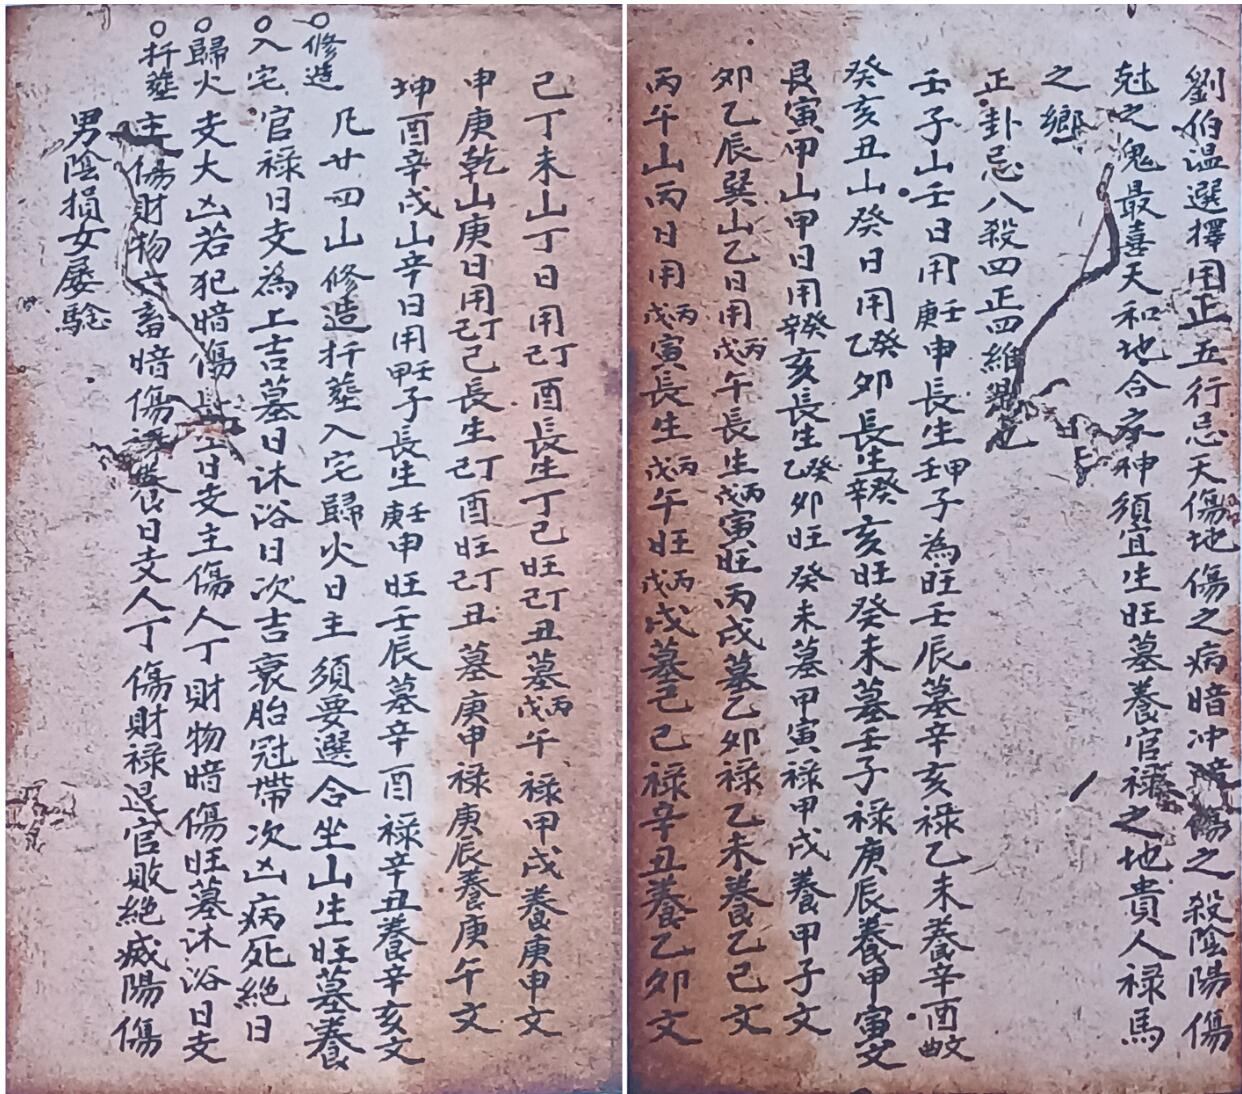 劉伯溫選擇用正五行忌天傷地傷之病暗冲暗傷之殺陰陽傷
尅之鬼最喜天和地合家神須宜生旺墓養官禄之地貴人禄馬
之鄉
正卦忌八殺四正四維
壬子山壬日用庚壬申長生壬甲子為旺壬辰墓辛亥禄乙未養辛酉文曲
癸亥丑山癸日用乙癸卯長生辛癸亥旺癸未墓壬子禄庚辰養甲寅文
艮寅甲山甲日用辛癸亥長生乙癸卯旺癸未墓甲寅禄甲戌養甲子文
卯乙辰巽山乙日用戊丙午長生戊丙寅旺丙戌墓乙卯禄乙未養乙己文
丙午山丙日用戊丙寅長生戊丙午旺戊丙戌墓己巳禄辛丑養乙卯文
己丁未山丁日用己丁酉長生丁己旺己丁丑墓戊丙午禄甲戌養庚申文
申庚乾山庚日用己丁己長生己丁酉旺己丁丑墓庚申禄庚辰養庚午文
坤酉辛戌山辛日用甲壬子長生庚壬申旺壬辰墓辛酉禄辛丑養辛亥文
修造
凡廿四山修造扦塟入宅歸火日主須要選合坐山生旺墓養
入宅
官禄日支為上吉墓日沐浴日次吉衰胎冠帶次凶病死絕日
歸火
支大凶若犯暗傷日支主傷人丁財物暗傷旺墓沐浴日支
扦塟
主傷財物六畜暗傷養日支人丁傷財禄退官敗絕滅陽傷
男陰損女屡騐